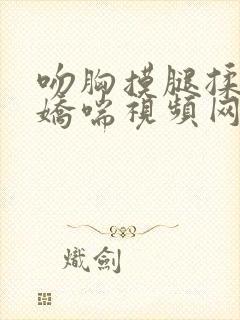 吻胸摸腿揉
娇喘視頻网
熾劍